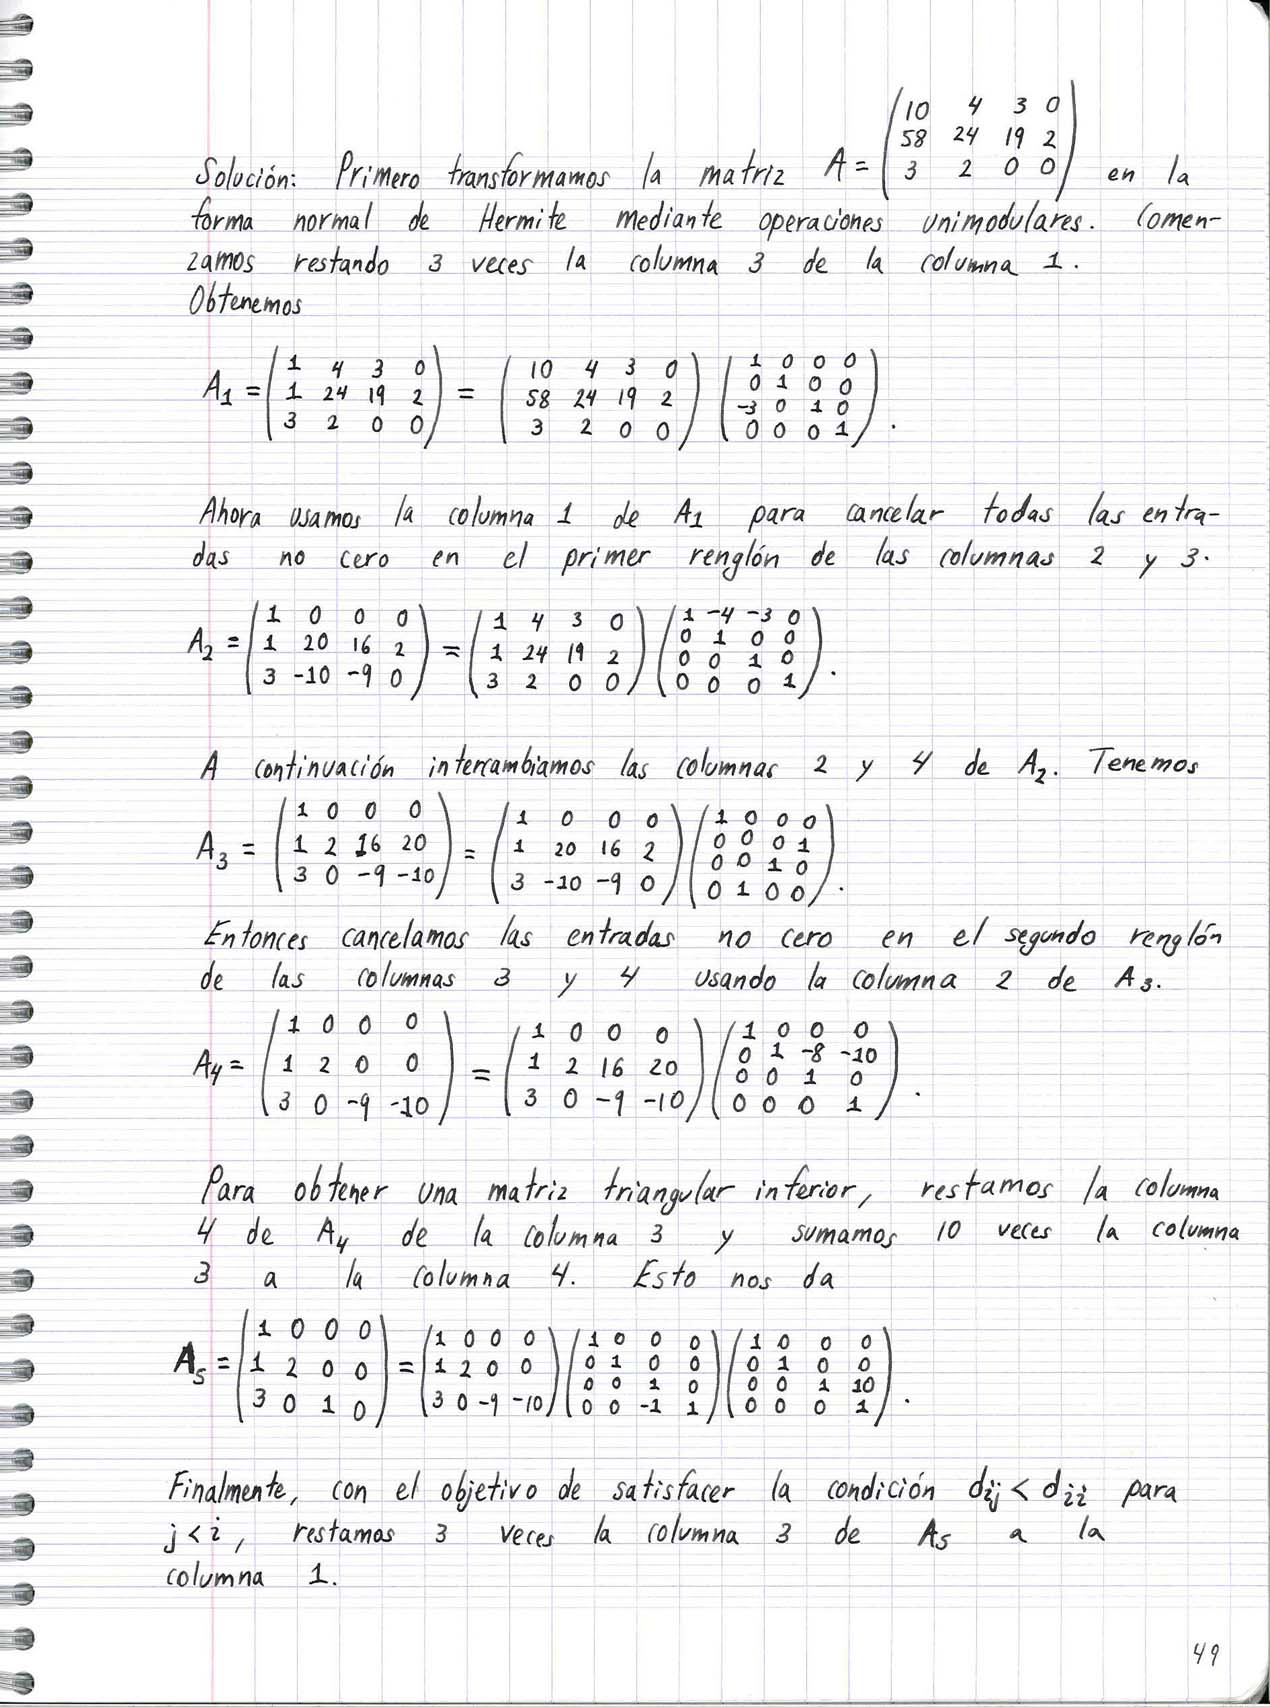 Solución: Primero transformamos la matriz A = \begin{pmatrix} 10 & 4 & 3 & 0 \\ 58 & 24 & 19 & 2 \\ 3 & 2 & 0 & 0 \end{pmatrix} en la
forma normal de Hermite mediante operaciones unimodulares. Comen-
zamos restando 3 veces la columna 3 de la columna 1.
Obtenemos
A_1 = \begin{pmatrix} 1 & 4 & 3 & 0 \\ 1 & 24 & 19 & 2 \\ 3 & 2 & 0 & 0 \end{pmatrix} = \begin{pmatrix} 10 & 4 & 3 & 0 \\ 58 & 24 & 19 & 2 \\ 3 & 2 & 0 & 0 \end{pmatrix} \begin{pmatrix} 1 & 0 & 0 & 0 \\ 0 & 1 & 0 & 0 \\ -3 & 0 & 1 & 0 \\ 0 & 0 & 0 & 1 \end{pmatrix}.
Ahora usamos la columna 1 de A_1 para cancelar todas las entra-
das no cero en el primer renglón de las columnas 2 y 3.
A_2 = \begin{pmatrix} 1 & 0 & 0 & 0 \\ 1 & 20 & 16 & 2 \\ 3 & -10 & -9 & 0 \end{pmatrix} = \begin{pmatrix} 1 & 4 & 3 & 0 \\ 1 & 24 & 19 & 2 \\ 3 & 2 & 0 & 0 \end{pmatrix} \begin{pmatrix} 1 & -4 & -3 & 0 \\ 0 & 1 & 0 & 0 \\ 0 & 0 & 1 & 0 \\ 0 & 0 & 0 & 1 \end{pmatrix}.
A continuación intercambiamos las columnas 2 y 4 de A_2. Tenemos
A_3 = \begin{pmatrix} 1 & 0 & 0 & 0 \\ 1 & 2 & 16 & 20 \\ 3 & 0 & -9 & -10 \end{pmatrix} = \begin{pmatrix} 1 & 0 & 0 & 0 \\ 1 & 20 & 16 & 2 \\ 3 & -10 & -9 & 0 \end{pmatrix} \begin{pmatrix} 1 & 0 & 0 & 0 \\ 0 & 0 & 0 & 1 \\ 0 & 0 & 1 & 0 \\ 0 & 1 & 0 & 0 \end{pmatrix}.
Entonces cancelamos las entradas no cero en el segundo renglón
de las columnas 3 y 4 usando la columna 2 de A_3.
A_4 = \begin{pmatrix} 1 & 0 & 0 & 0 \\ 1 & 2 & 0 & 0 \\ 3 & 0 & -9 & -10 \end{pmatrix} = \begin{pmatrix} 1 & 0 & 0 & 0 \\ 1 & 2 & 16 & 20 \\ 3 & 0 & -9 & -10 \end{pmatrix} \begin{pmatrix} 1 & 0 & 0 & 0 \\ 0 & 1 & -8 & -10 \\ 0 & 0 & 1 & 0 \\ 0 & 0 & 0 & 1 \end{pmatrix}.
Para obtener una matriz triangular inferior, restamos la columna
4 de A_4 de la columna 3 y sumamos 10 veces la columna
3 a la columna 4. Esto nos da
A_5 = \begin{pmatrix} 1 & 0 & 0 & 0 \\ 1 & 2 & 0 & 0 \\ 3 & 0 & 1 & 0 \end{pmatrix} = \begin{pmatrix} 1 & 0 & 0 & 0 \\ 1 & 2 & 0 & 0 \\ 3 & 0 & -9 & -10 \end{pmatrix} \begin{pmatrix} 1 & 0 & 0 & 0 \\ 0 & 1 & 0 & 0 \\ 0 & 0 & 1 & 0 \\ 0 & 0 & -1 & 1 \end{pmatrix} \begin{pmatrix} 1 & 0 & 0 & 0 \\ 0 & 1 & 0 & 0 \\ 0 & 0 & 1 & 10 \\ 0 & 0 & 0 & 1 \end{pmatrix}.
Finalmente, con el objetivo de satisfacer la condición d_{ij} < d_{ii} para
j < i, restamos 3 veces la columna 3 de A_5 a la
columna 1.
49